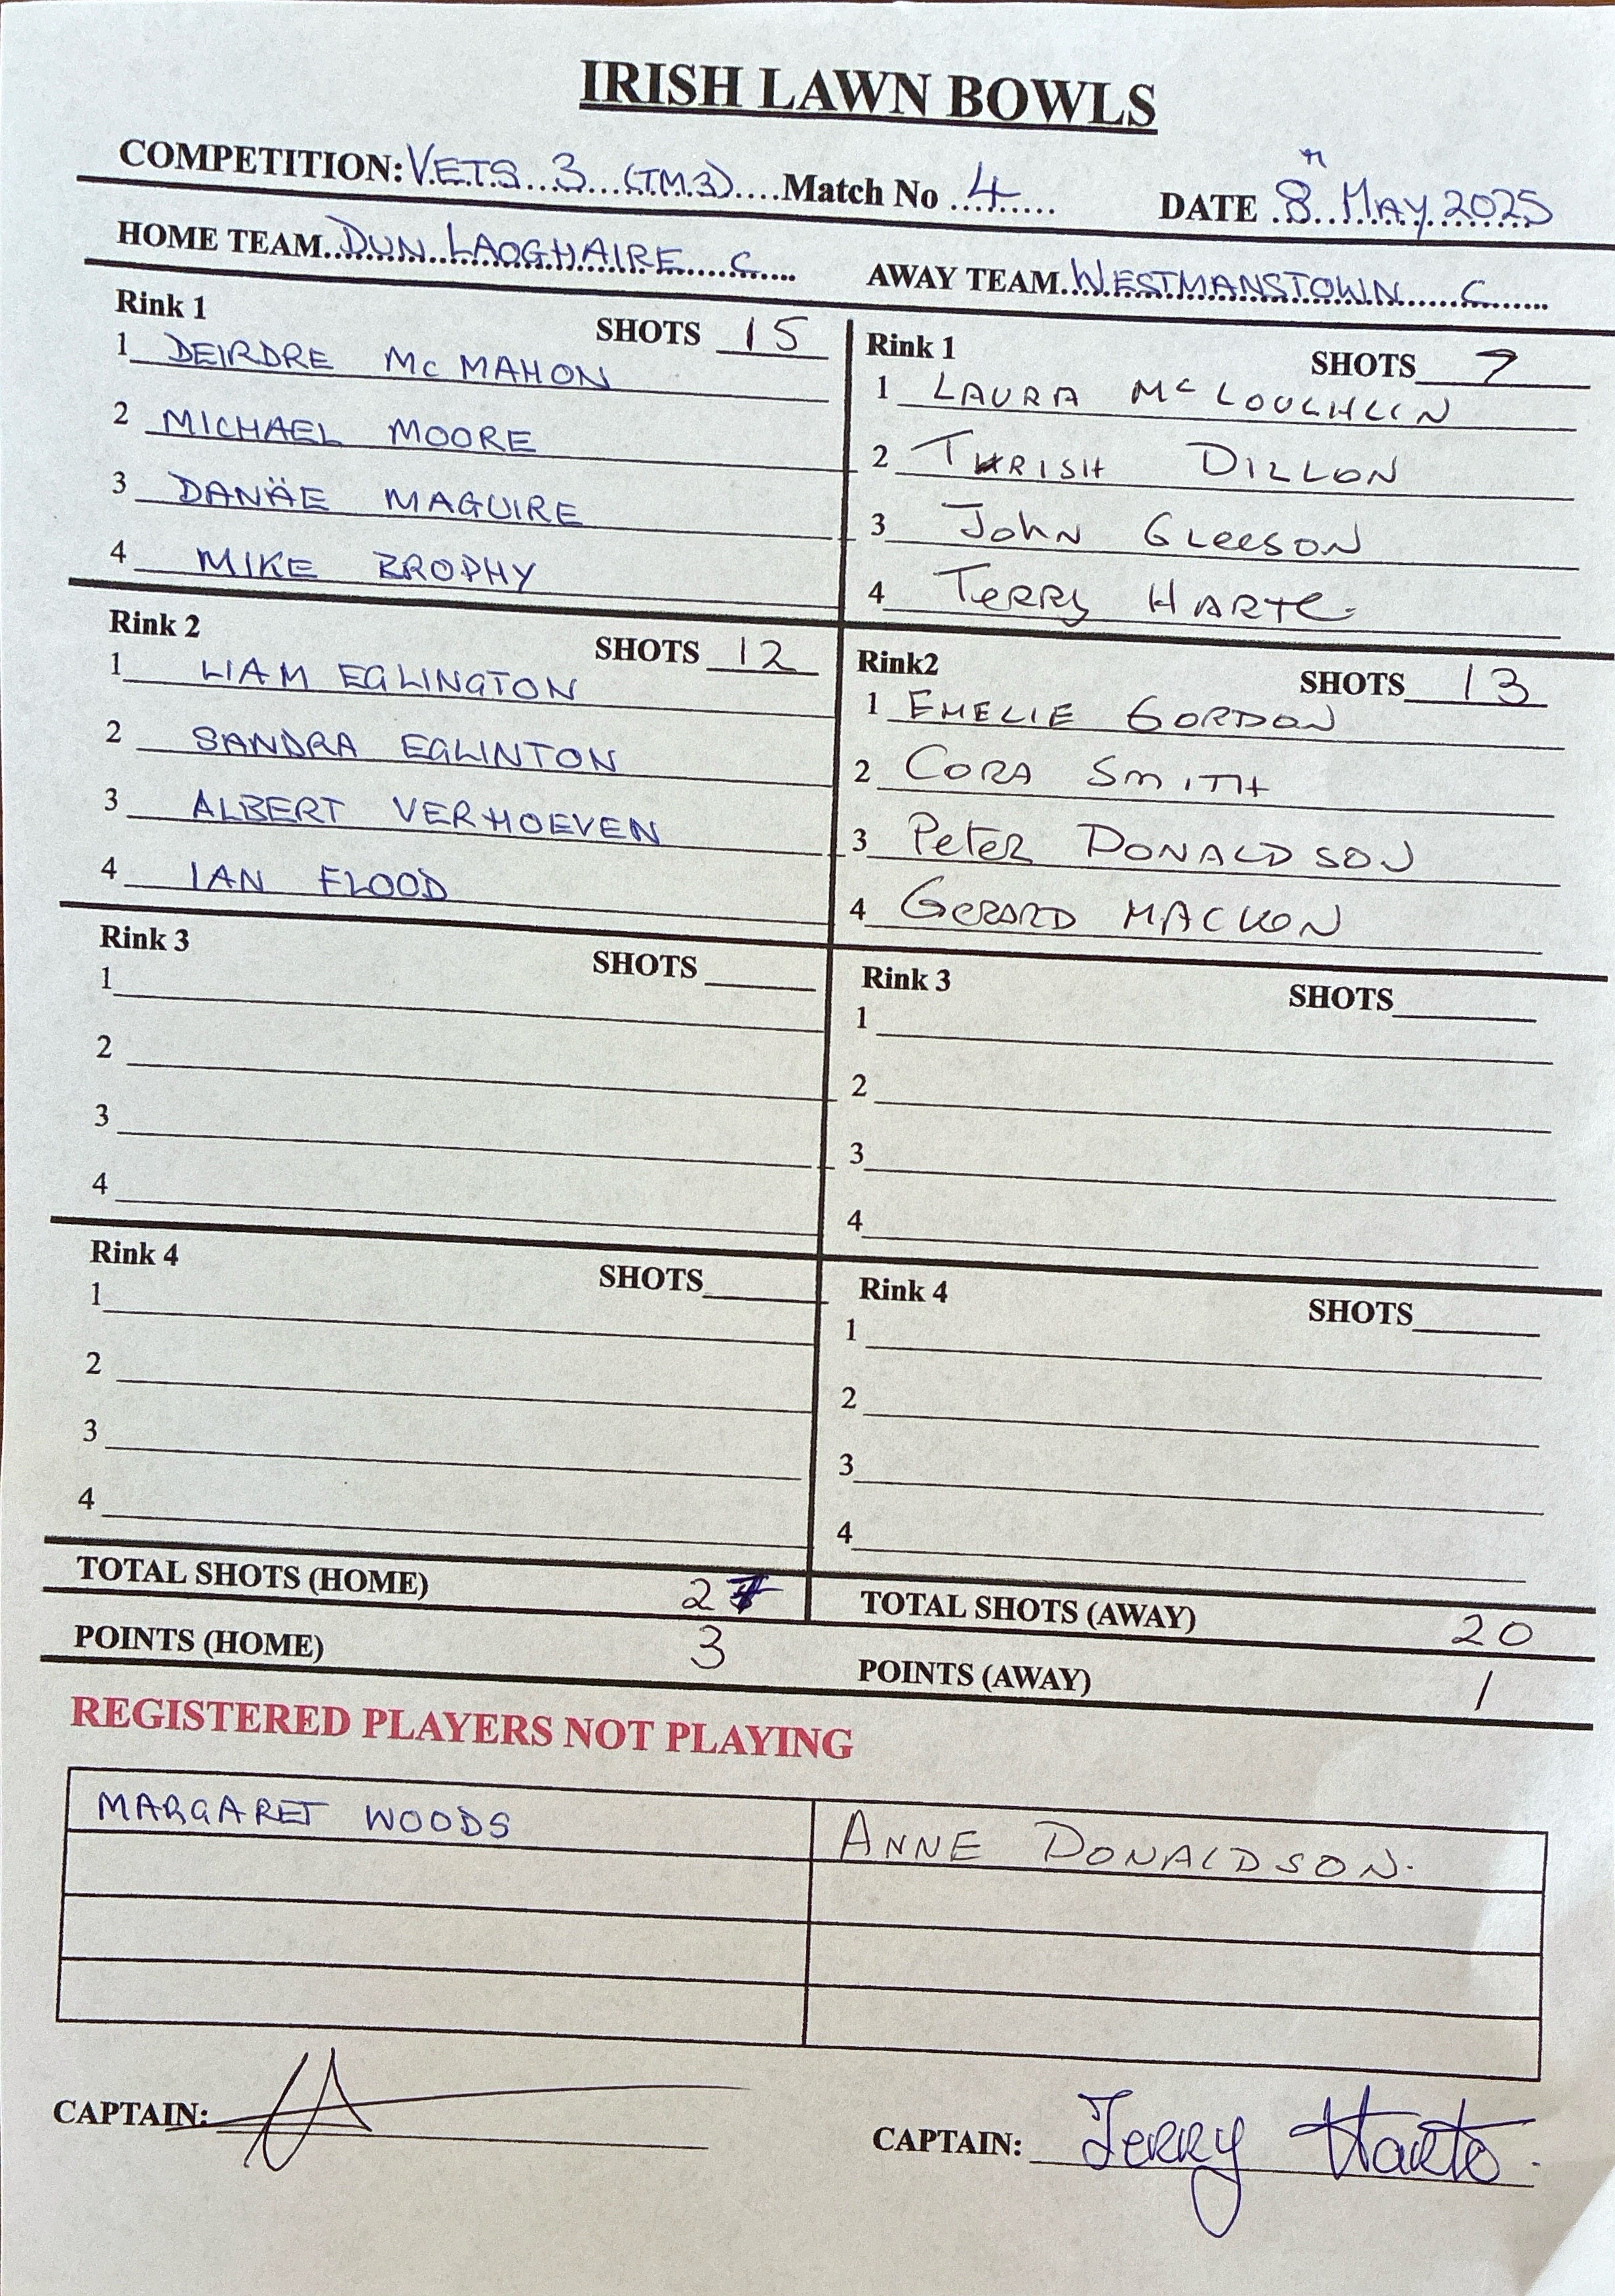 IRISH LAWN BOWLS
COMPETITION: V.E.T.S 3 (T.M.3) Match No 4 DATE 8th MAY 2025
HOME TEAM DUN LAOGHAIRE C AWAY TEAM WESTMANSTOWN C
Rink 1 SHOTS 15
1 DEIRDRE Mc MAHON
2 MICHAEL MOORE
3 DANÄE MAGUIRE
4 MIKE BROPHY
Rink 1 SHOTS 7
1 LAURA Mc LOUGHLIN
2 DILLON
3 JOHN GLEESON
4 TERRY HARTE
Rink 2 SHOTS 12
1 LIAM EGLINGTON
2 SANDRA EGLINTON
3 ALBERT VERHOEVEN
4 IAN FLOOD
Rink2 SHOTS 13
1 EMELIE GORDON
2 CORA SMITH
3 PETER DONALDSON
4 GERARD MACKON
Rink 3 SHOTS
1
2
3
4
Rink 3 SHOTS
1
2
3
4
Rink 4 SHOTS
1
2
3
4
Rink 4 SHOTS
1
2
3
4
TOTAL SHOTS (HOME) 27 TOTAL SHOTS (AWAY) 20
POINTS (HOME) 3 POINTS (AWAY) 1
REGISTERED PLAYERS NOT PLAYING
MARGARET WOODS
ANNE DONALDSON.
CAPTAIN:
CAPTAIN: Terry Harte